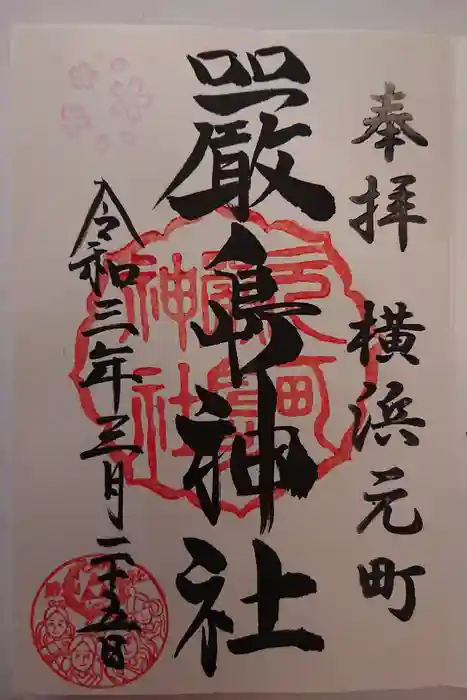 奉拝 横浜元町
嚴島神社
令和三年三月二十五日
元町
嚴島
神社